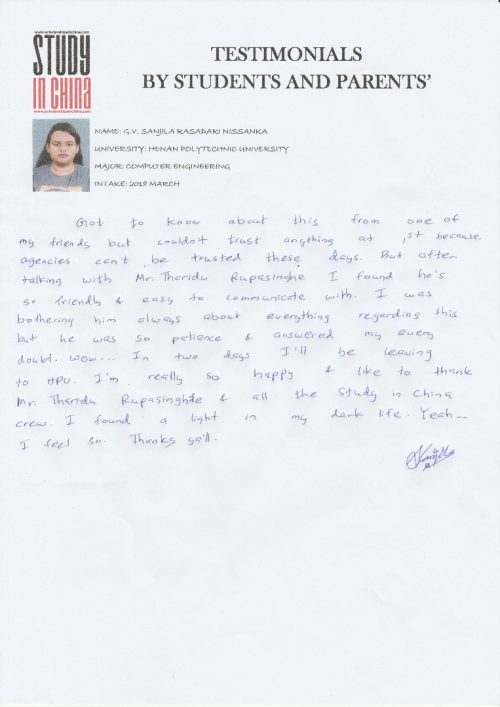 www.scholarshipsinchina.com
STUDY
IN CHINA
www.scholarshipsinchina.com
TESTIMONIALS
BY STUDENTS AND PARENTS’
NAME: G.V. SANJILA RASADARI NISSANKA
UNIVERSITY: HENAN POLYTECHNIC UNIVERSITY
MAJOR: COMPUTER ENGINEERING
INTAKE: 2018 MARCH
Got to know about this from one of
my friends but couldn't trust anything at 1st because
agencies can't be trusted these days. But after
talking with Mr. Tharidu Rupasinghe I found he's
so friendly & easy to communicate with. I was
bothering him always about everything regarding this
but he was so patience & answered my every
doubt. wow... In two days I'll be leaving
to HPU. I'm really so happy & like to thank
Mr. Tharidu Rupasinghe & all the Study in China
crew. I found a light in my dark life. Yeah...
I feel so. Thanks ya'll.